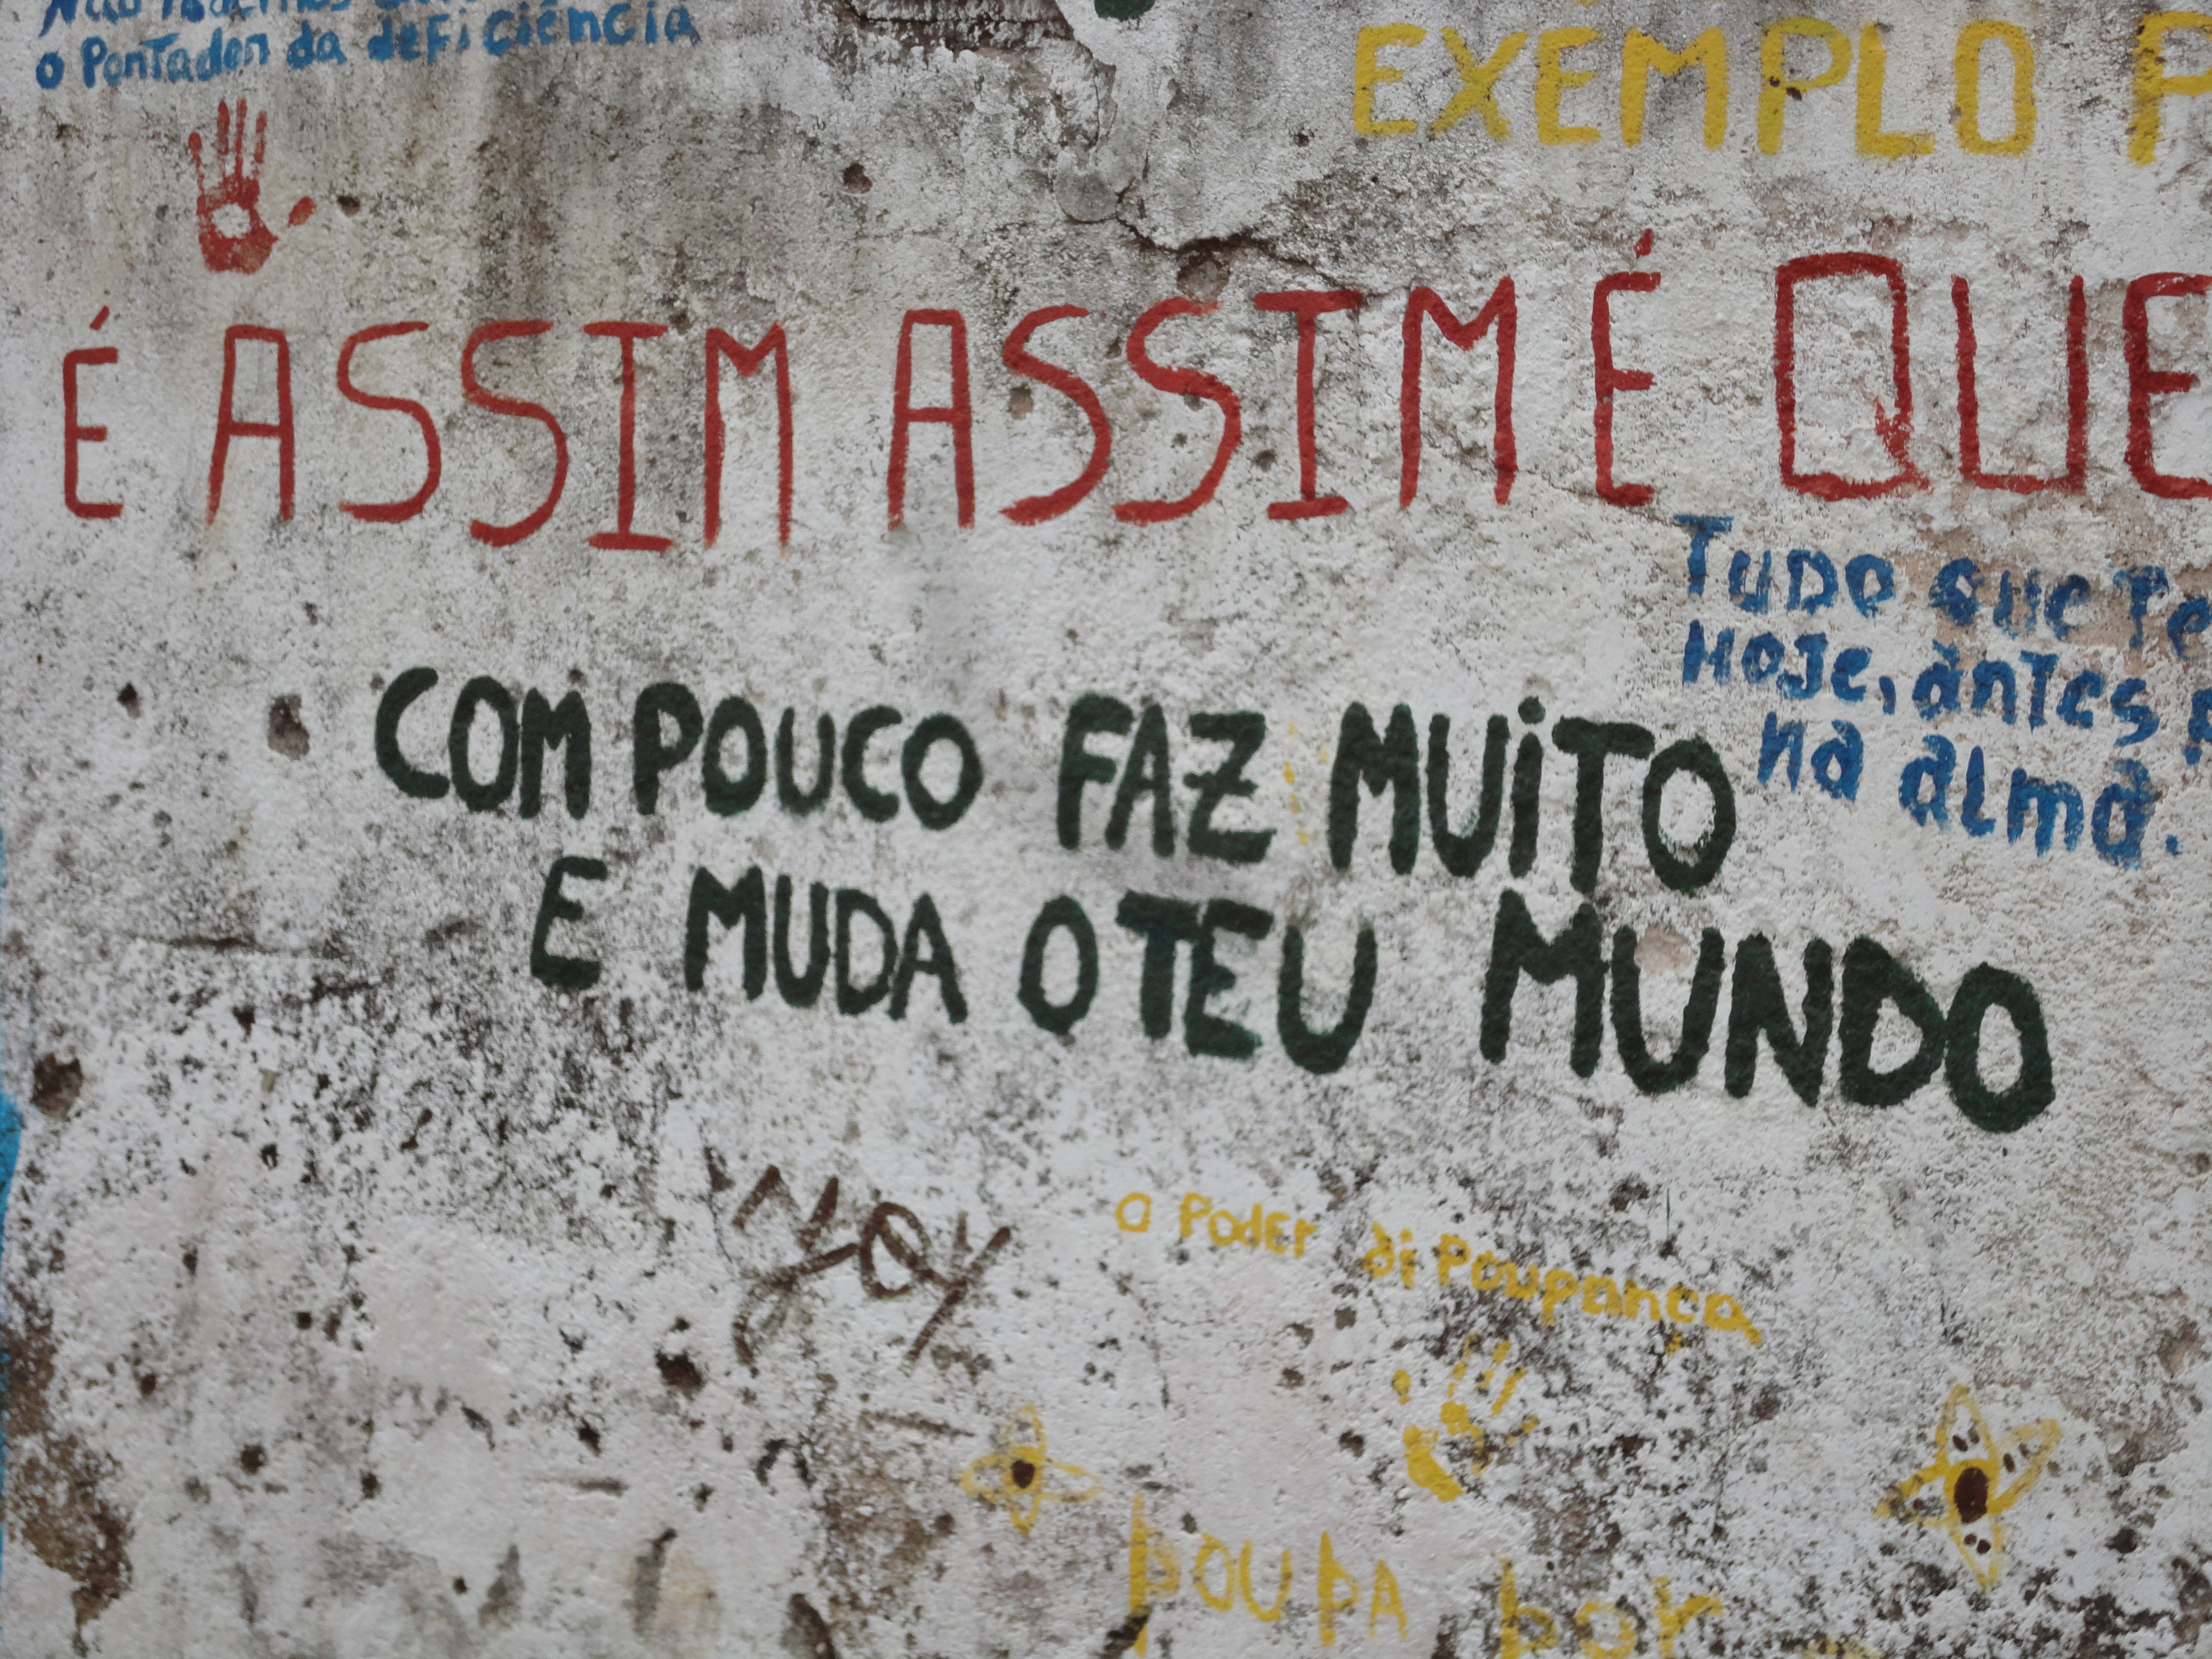 o Pontador da deficiência
EXEMPLO
É ASSIM ASSIM É QUE
Tudo que
Hoje, antes
na alma.
COM POUCO FAZ MUITO
E MUDA O TEU MUNDO
o Poder di Poupança
POUPA